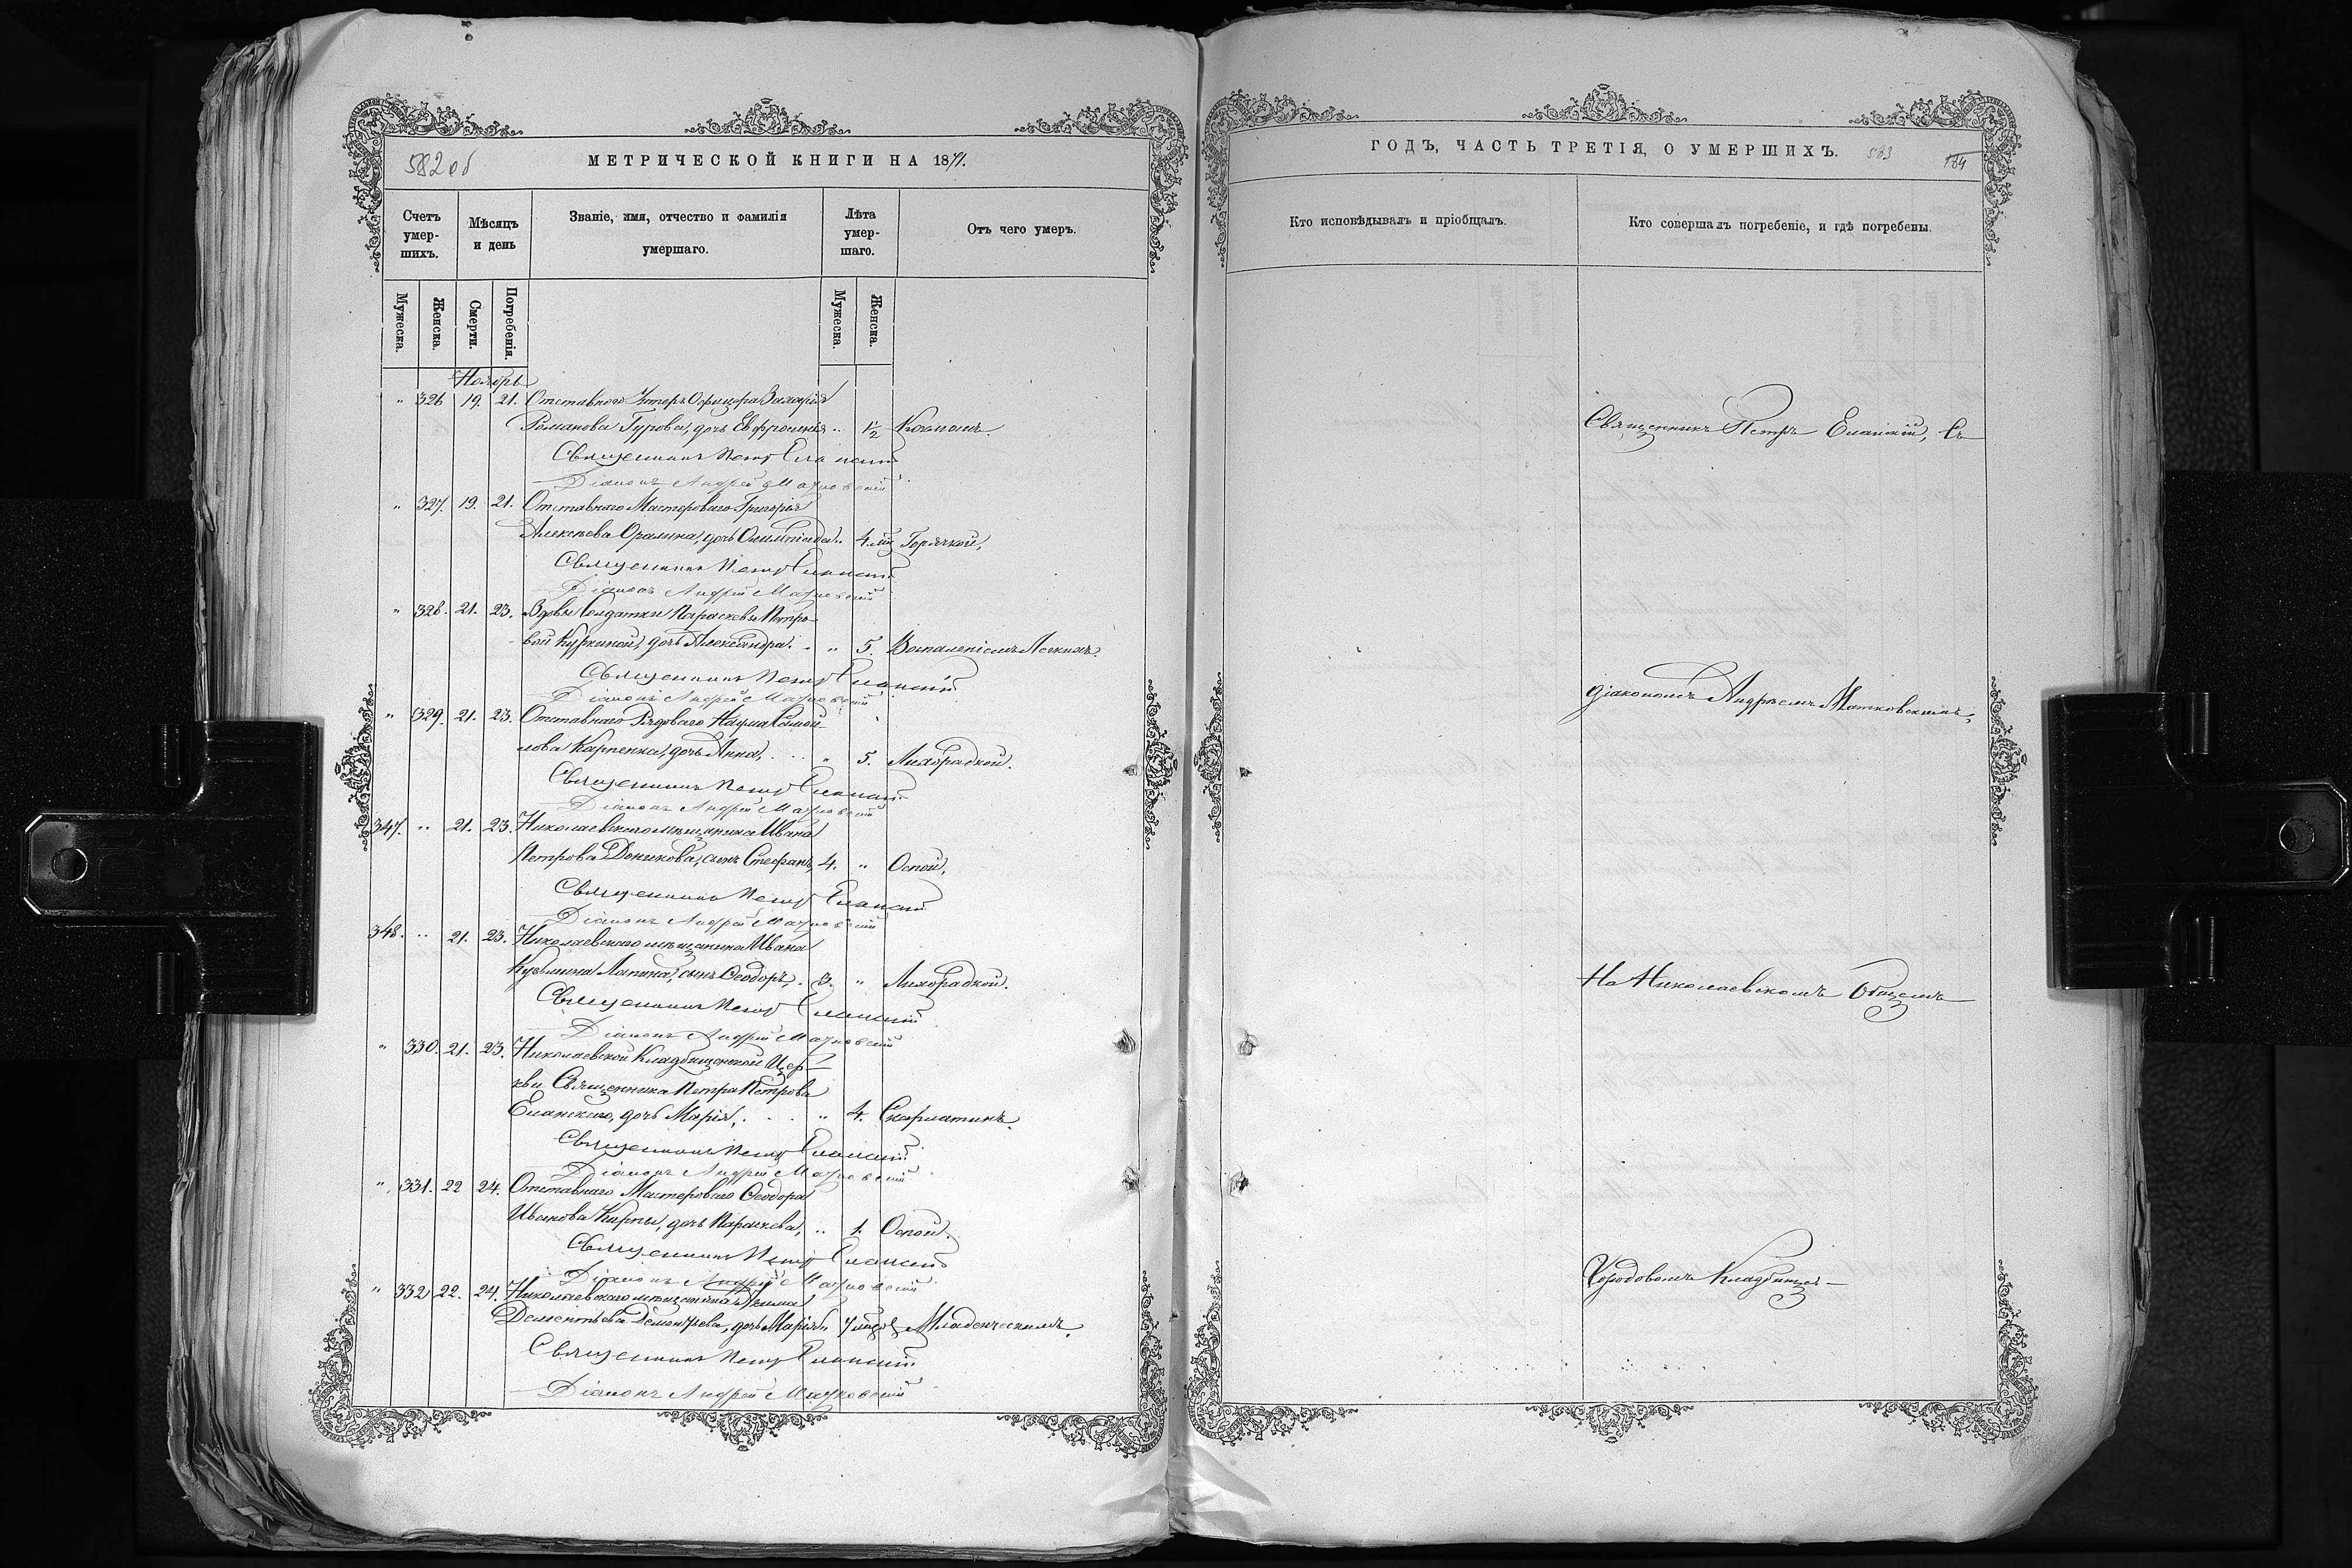 582 об
МЕТРИЧЕСКОЙ КНИГИ НА 1871.
Счетъ умершихъ.
Мѣсяцъ и день
Званіе, имя, отчество и фамилія умершаго.
Лѣта умершаго.
Отъ чего умеръ.
Мужеска.
Женска.
Смерти.
Погребенія.
Мужеска.
Женска.
Ноябрь
" 326 19. 21. Отставнаго Унтеръ Офицера Захарія
Романова Гурова, дочь Евфросинія " 1½
Священникъ Петръ Еланскій
Діаконъ Андрей Матковскій
" 327. 19. 21. Отставнаго Мастероваго Григорія
Алексѣева дочь Олимпіада " 4 Горячкой,
Священникъ Петръ Еланскій
Діаконъ Андрей Матковскій
" 328. 21. 23. Вдовы Солдатки Параскевы Петро-
вой Куркиной, дочь Александра. " 5. Воспаленіемъ Легкихъ.
Священникъ Петръ Еланскій
Діаконъ Андрей Матковскій
" 329. 21. 23. Отставнаго Рядоваго Наума Самой-
лова Карпенка, дочь Анна, " 5. Лихорадкой.
Священникъ Петръ Еланскій
Діаконъ Андрей Матковскій
347. " 21. 23. Николаевскаго мѣщанина Ивана
Петрова сынъ Стефанъ, 4. " Оспой,
Священникъ Петръ Еланскій
Діаконъ Андрей Матковскій
348. " 21. 23. Николаевскаго мѣщанина Ивана
Кузьмина Лапина, сынъ Ѳеодоръ, 3. " Лихорадкой.
Священникъ Петръ Еланскій
Діаконъ Андрей Матковскій
" 330. 21. 23. Николаевской Кладбищенской Цер-
кви Священника Петра Петрова
Еланскаго, дочь Марія, " 4. Скарлатинъ.
Священникъ Петръ Еланскій
Діаконъ Андрей Матковскій
" 331. 22 24. Отставнаго Мастероваго Ѳеодора
Иванова Кирпы, дочь Параскева, " 1. Оспой.
Священникъ Петръ Еланскій
Діаконъ Андрей Матковскій
" 332 22. 24. Николаевскаго мѣщанина
Дементьева Дементьева, дочь Марія " 7 Младенческимъ.
Священникъ Петръ Еланскій
Діаконъ Андрей Матковскій
ГОДЪ, ЧАСТЬ ТРЕТІЯ, О УМЕРШИХЪ. 583
184
Кто исповѣдывалъ и пріобщалъ.
Кто совершалъ погребеніе, и гдѣ погребены.
Священникъ Петръ Еланскій, Съ
діакономъ Андреемъ Матковскимъ,
На Николаевскомъ Общемъ
Городовомъ Кладбищѣ